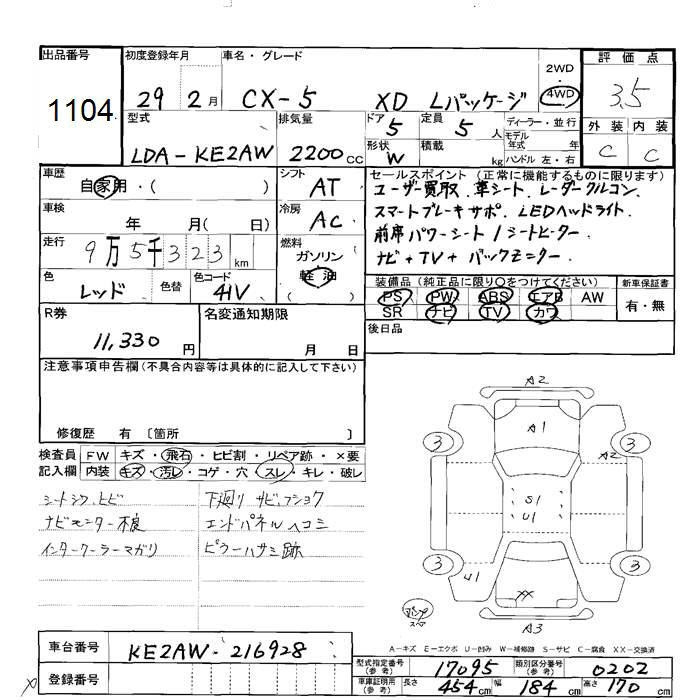 出品番号
1104
初度登録年月
29年2月
車名・グレード
CX-5 XD Lパッケージ
2WD
・
4WD
評価点
3.5
外装 内装
C C
型式
LDA-KE2AW
排気量
2200cc
ドア 5
定員 5人
形状 W
積載 kg
ディーラー・並行
モデル年式 年
ハンドル 左・右
車歴
自家用・( )
シフト
AT
車検
年 月( 日)
冷房
AC
走行
9万5千323km
燃料
ガソリン
軽油
色
レッド
色替
色コード
41V
セールスポイント (正常に機能するものに限ります)
ユーザー買取. 革シート. レーダークルコン.
スマートブレーキサポ. LEDヘッドライト.
前席パワーシート/シートヒーター.
ナビ+TV+バックモニター.
装備品(純正品に限り○をつけてください)
PS PW ABS エアB AW
SR ナビ TV カワ
新車保証書
有・無
後日品
R券
11,330円
名変通知期限
月 日
注意事項申告欄(不具合内容等は具体的に記入して下さい)
修復歴 有 〔箇所 〕
検査員記入欄
FW キズ・飛石・ヒビ割・リペア跡・×要
内装 キズ・汚レ・コゲ・穴・スレ・キレ・破レ
シートシワ、ヒビ
ナビモニター不良
インタークーラーマガリ
下廻りサビ、フショク
エンドパネルヘコミ
ピラーハサミ跡
A2
A1
3 3
A2
S1
U1
3 3
U1
XX
A3
A-キズ E-エクボ U-凹み W-補修跡 S-サビ C-腐食 XX-交換済
車台番号
KE2AW-216928
登録番号
型式指定番号(参考)
17095
類別区分番号(参考)
0202
車庫証明用(参考)
長さ 454cm 幅 184cm 高さ 170cm